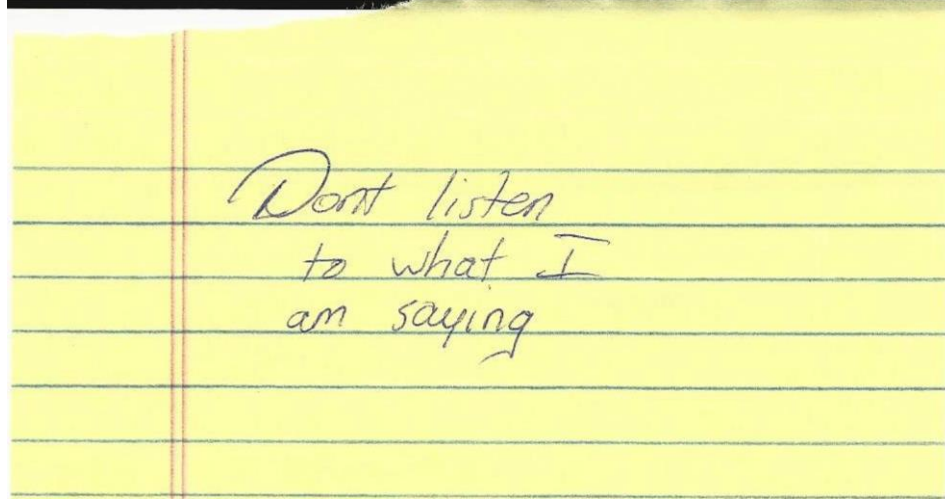 Dont listen
to what I
am saying